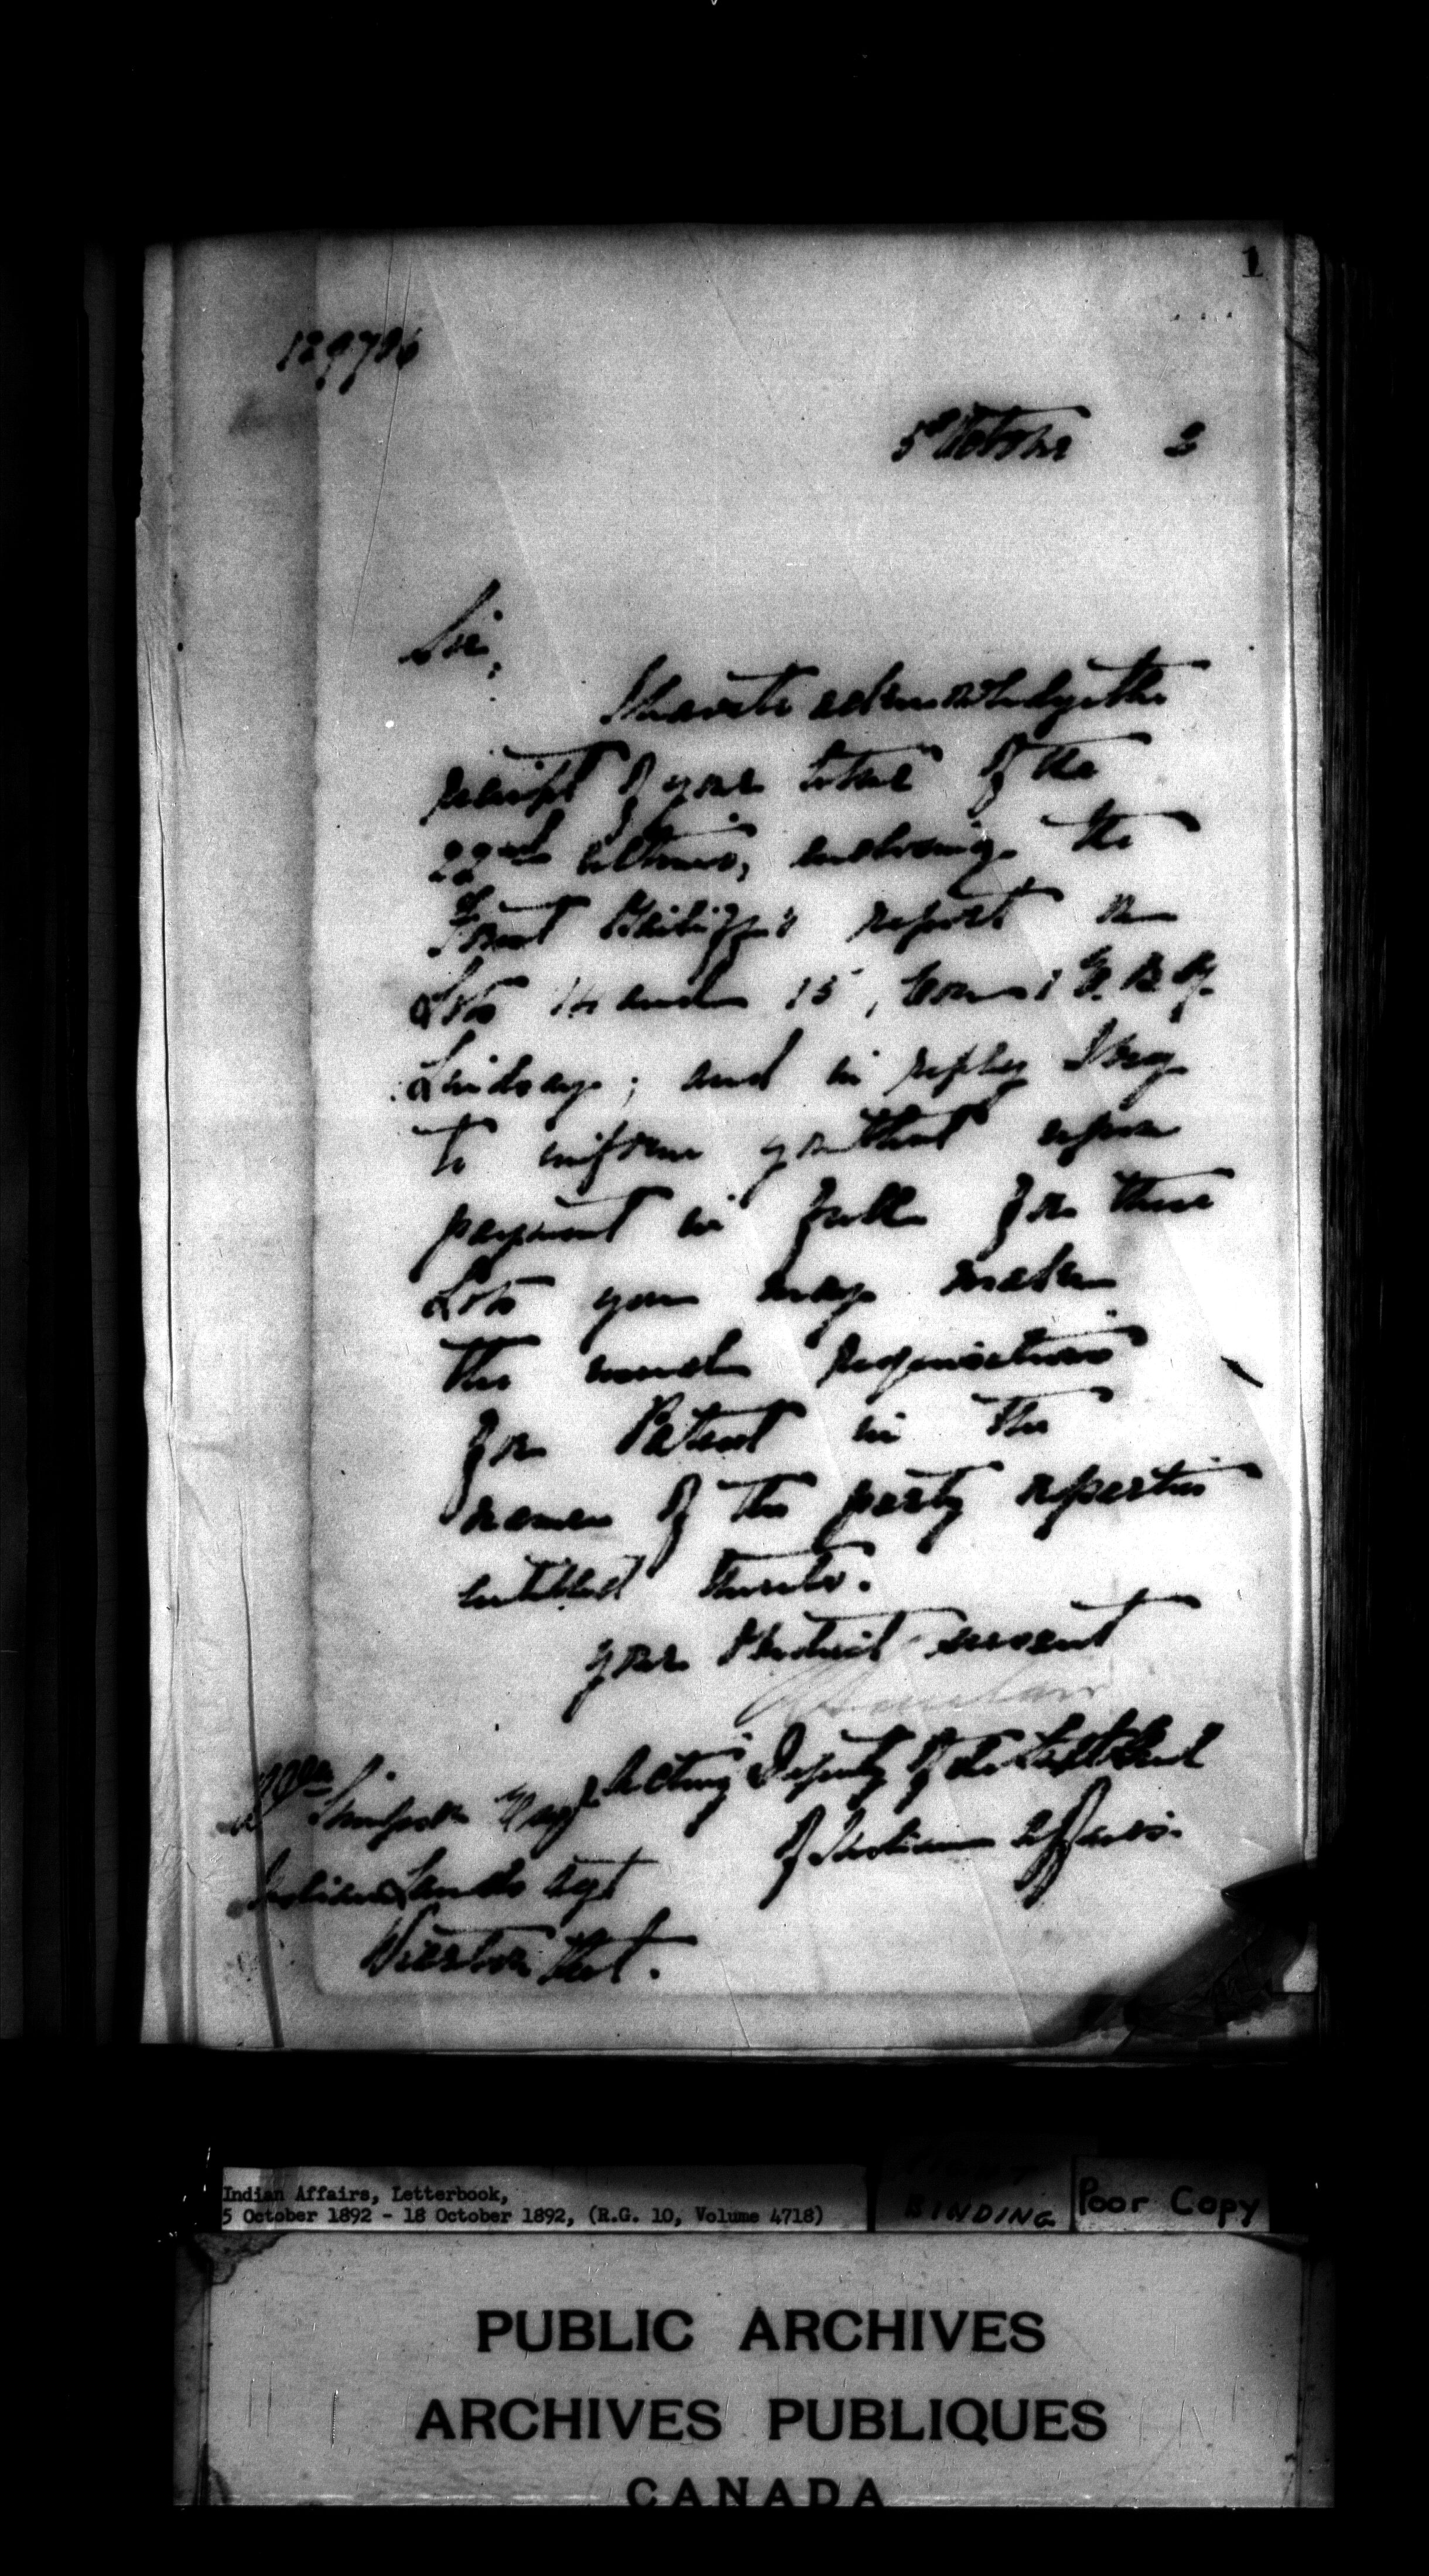 1
129786
5th October 2
Sir,
I have to acknowledge the
receipt of your letter of the
22nd ultimo, enclosing the
Forest report on
Lots 14 and 15, Con 1 E. B. R.
Lindsay; and in reply I beg
to inform you that upon
payment in full for these
Lots you may make
the usual requisitions
for Patent in the
names of the party reported
entitled thereto.
Your obedient servant
Sinclair
Acting Deputy of the Supt Genl
of Indian Affairs.
Wm Simpson Esq
Indian Lands Agt
Wiarton Ont.
Indian Affairs, Letterbook,
5 October 1892 - 18 October 1892, (R.G. 10, Volume 4718)
TIGHT
BINDING
Poor Copy
PUBLIC ARCHIVES
ARCHIVES PUBLIQUES
CANADA